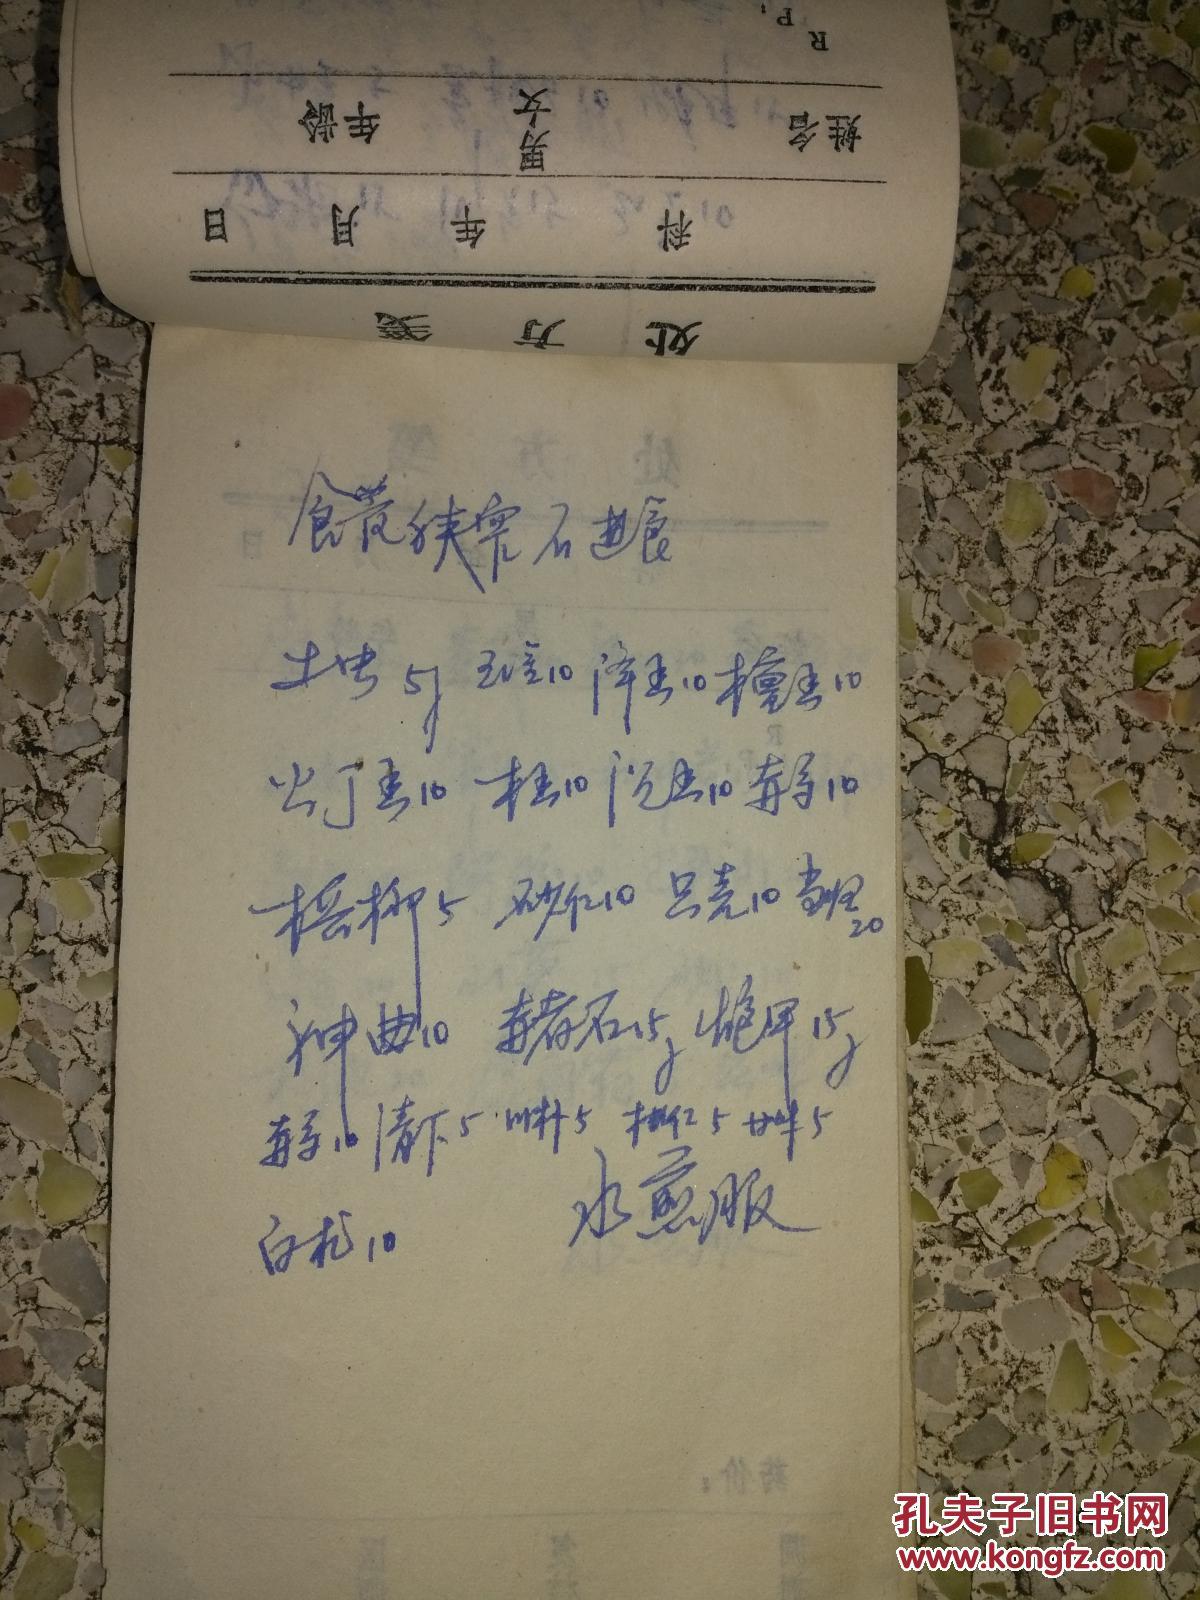 R P:
姓名 男女 年龄
科 年 月 日
处方笺
食管狭窄不进食
土虫5g 三棱10 降香10 檀香10
公丁香10 木香10 沉香10 10
槟榔5 砂仁10 只壳10 当归20
神曲10 赭石15g 炮甲15g
10 清下5 川朴5 桃仁5 甘草5
白术10
水煎服
药价:
孔夫子旧书网
www.kongfz.com